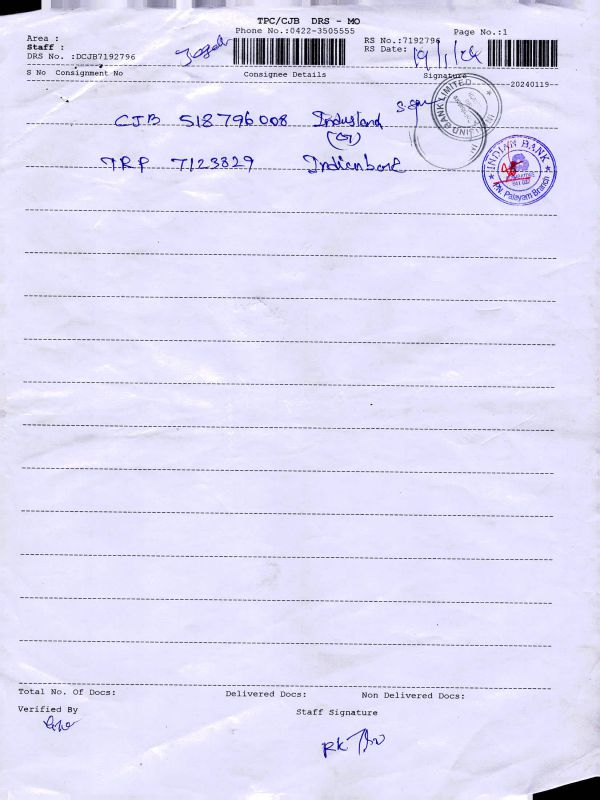 TPC/CJB DRS - MO
Phone No.:0422-3505555
Page No.:1
Area :
Staff :
DRS No. :DCJB7192796
RS No.:7192796
RS Date: 19/1/24
S No Consignment No Consignee Details Signature
---20240119--
CJB 518796008 Indusland
(G)
TRP 7123829 Indianbank
INDIAN BANK
P.N. Palayam Branch
Total No. Of Docs: Delivered Docs: Non Delivered Docs:
Verified By
Staff Signature